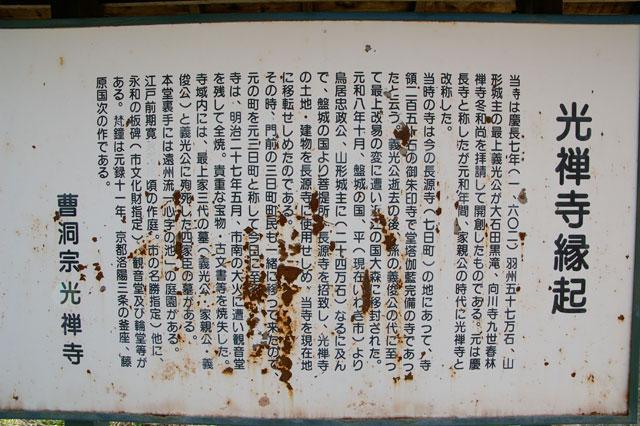 光禅寺縁起
当寺は慶長七年(一、六〇二)羽州五十七万石、山
形城主の最上義光公が大石田黒滝、向川寺九世春林
禅寺冬和尚を拝請して開創したものである。元は慶
長寺と称したが元和年間、家親公の時代に光禅寺と
改称した。
当時の寺は今の長源寺(七日町)の地にあって、寺
領二百五十石の御朱印寺で堂塔伽藍完備の寺であっ
たと云う。義光公逝去の後、孫の義俊公の代に至っ
て最上改易の変に遭い近江の国大森に移封された。
元和八年十月、盤城の国、平(現在いわき市)より
鳥居忠政公、山形城主に(二十四万石)なるに及ん
で、盤城の国より菩提所、長源寺を招致し、光禅寺
の土地・建物を長源寺に使用せしめ、当寺を現在地
に移転せしめたのである。
その時、門前の三日町町民も一緒に移って来たので
元の町を元三日町と称して今日に至
寺は、明治二十七年五月、市南の大火に遭い観音堂
を残して全焼。貴重な宝物・古文書等を焼失した。
寺域内には、最上家三代の墓(義光公・家親公・義
俊公)と義光公に殉死した四家臣の墓がある。
本堂裏手には遠州流「心字の池」の庭園がある。
江戸前期寛 頃の作庭。市の名勝指定)他に、
永和の板碑(市文化財指定)、観音堂及び輪堂等が
ある。梵鐘は元録十一年、京都洛陽三条の釜座、藤
原国次の作である。
曹洞宗光禅寺